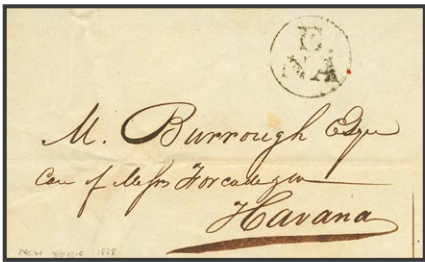 E
NA
M. Burrough Esqr
Care of Messrs Forcade & Co
Havana
NEW YORK 1828